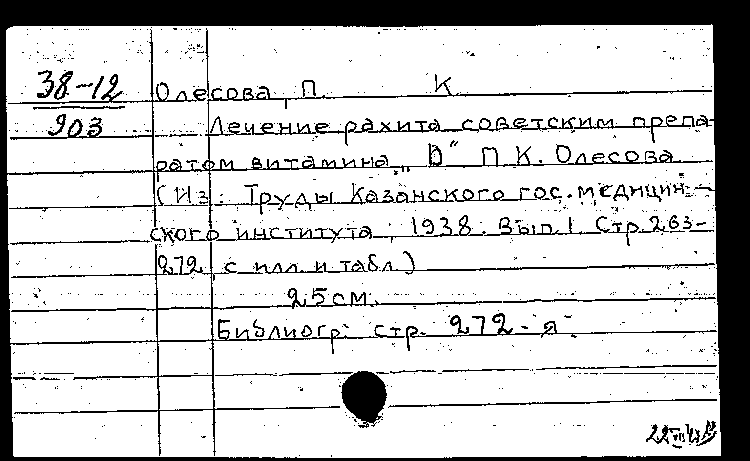 38-12
903
Олесова, П К
Лечение рахита советским препа-
ратом витамина „D" П.К. Олесова
(Из: Труды Казанского гос. медицин-
ского института, 1938. Вып. 1. Стр. 263-
272, с илл. и табл.)
25 см.
Библиогр: стр. 272-я